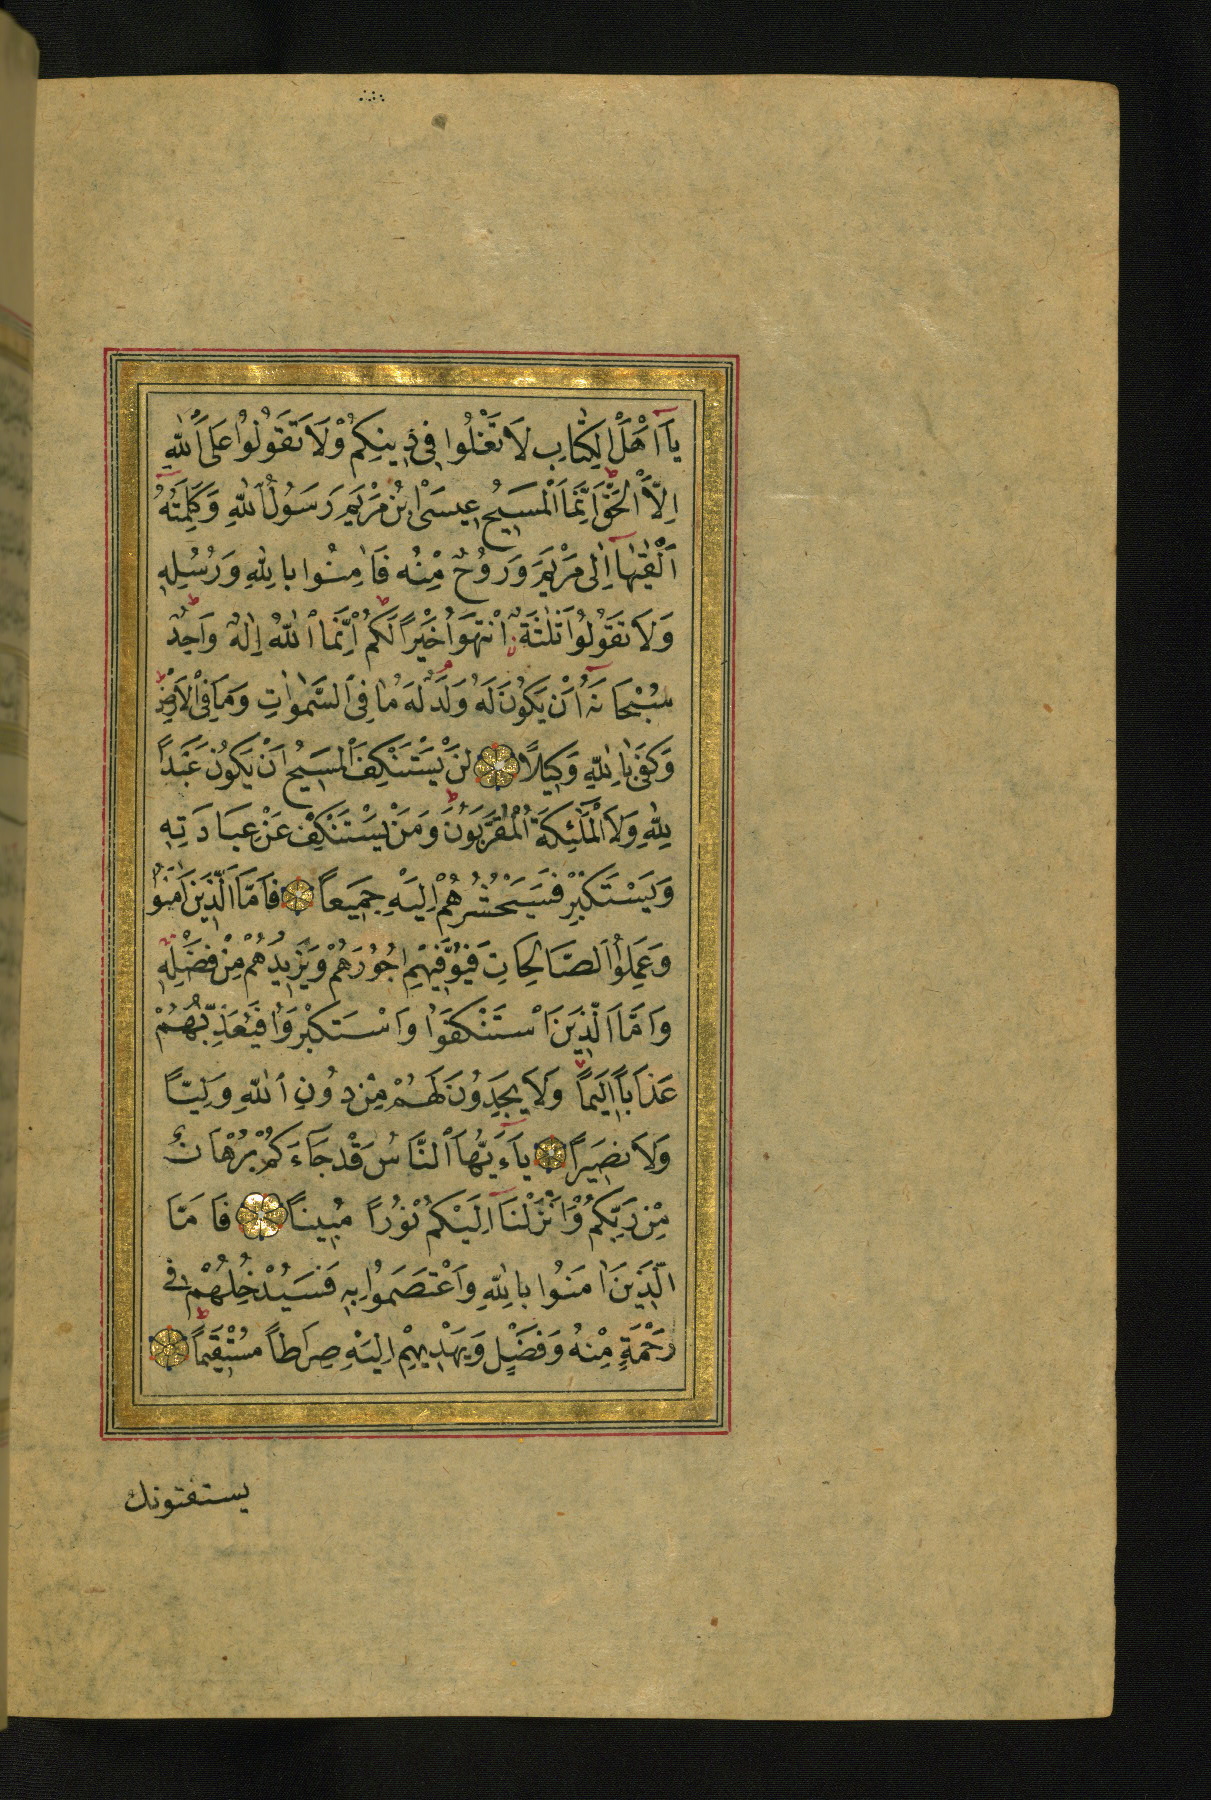 يَا اَهْلَ الْكِتَابِ لَا تَغْلُوا فِى دِينِكُمْ وَلَا تَقُولُوا عَلَى اللّٰهِ
اِلَّا الْحَقَّ اِنَّمَا الْمَسِيحُ عِيسَى ابْنُ مَرْيَمَ رَسُولُ اللّٰهِ وَكَلِمَتُهُ
اَلْقٰيهَا اِلٰى مَرْيَمَ وَرُوحٌ مِنْهُ فَاٰمِنُوا بِاللّٰهِ وَرُسُلِهِ
وَلَا تَقُولُوا ثَلٰثَةٌ اِنْتَهُوا خَيْرًا لَكُمْ اِنَّمَا اللّٰهُ اِلٰهٌ وَاحِدٌ
سُبْحَانَهُ اَنْ يَكُونَ لَهُ وَلَدٌ لَهُ مَا فِى السَّمٰوَاتِ وَمَا فِى الْاَرْضِ
وَكَفَى بِاللّٰهِ وَكِيلًا لَنْ يَسْتَنْكِفَ الْمَسِيحُ اَنْ يَكُونَ عَبْدًا
لِلّٰهِ وَلَا الْمَلٰئِكَةُ الْمُقَرَّبُونَ وَمَنْ يَسْتَنْكِفْ عَنْ عِبَادَتِهِ
وَيَسْتَكْبِرْ فَسَيَحْشُرُهُمْ اِلَيْهِ جَمِيعًا فَاَمَّا الَّذِينَ اٰمَنُوا
وَعَمِلُوا الصَّالِحَاتِ فَيُوَفِّيهِمْ اُجُورَهُمْ وَيَزِيدُهُمْ مِنْ فَضْلِهِ
وَاَمَّا الَّذِينَ اسْتَنْكَفُوا وَاسْتَكْبَرُوا فَيُعَذِّبُهُمْ
عَذَابًا اَلِيمًا وَلَا يَجِدُونَ لَهُمْ مِنْ دُونِ اللّٰهِ وَلِيًّا
وَلَا نَصِيرًا يَاءَيُّهَا النَّاسُ قَدْ جَاءَكُمْ بُرْهَانٌ
مِنْ رَبِّكُمْ وَاَنْزَلْنَا اِلَيْكُمْ نُورًا مُبِينًا فَاَمَّا
الَّذِينَ اٰمَنُوا بِاللّٰهِ وَاعْتَصَمُوا بِهِ فَسَيُدْخِلُهُمْ فِى
رَحْمَةٍ مِنْهُ وَفَضْلٍ وَيَهْدِيهِمْ اِلَيْهِ صِرَاطًا مُسْتَقِيمًا
يستفتونك